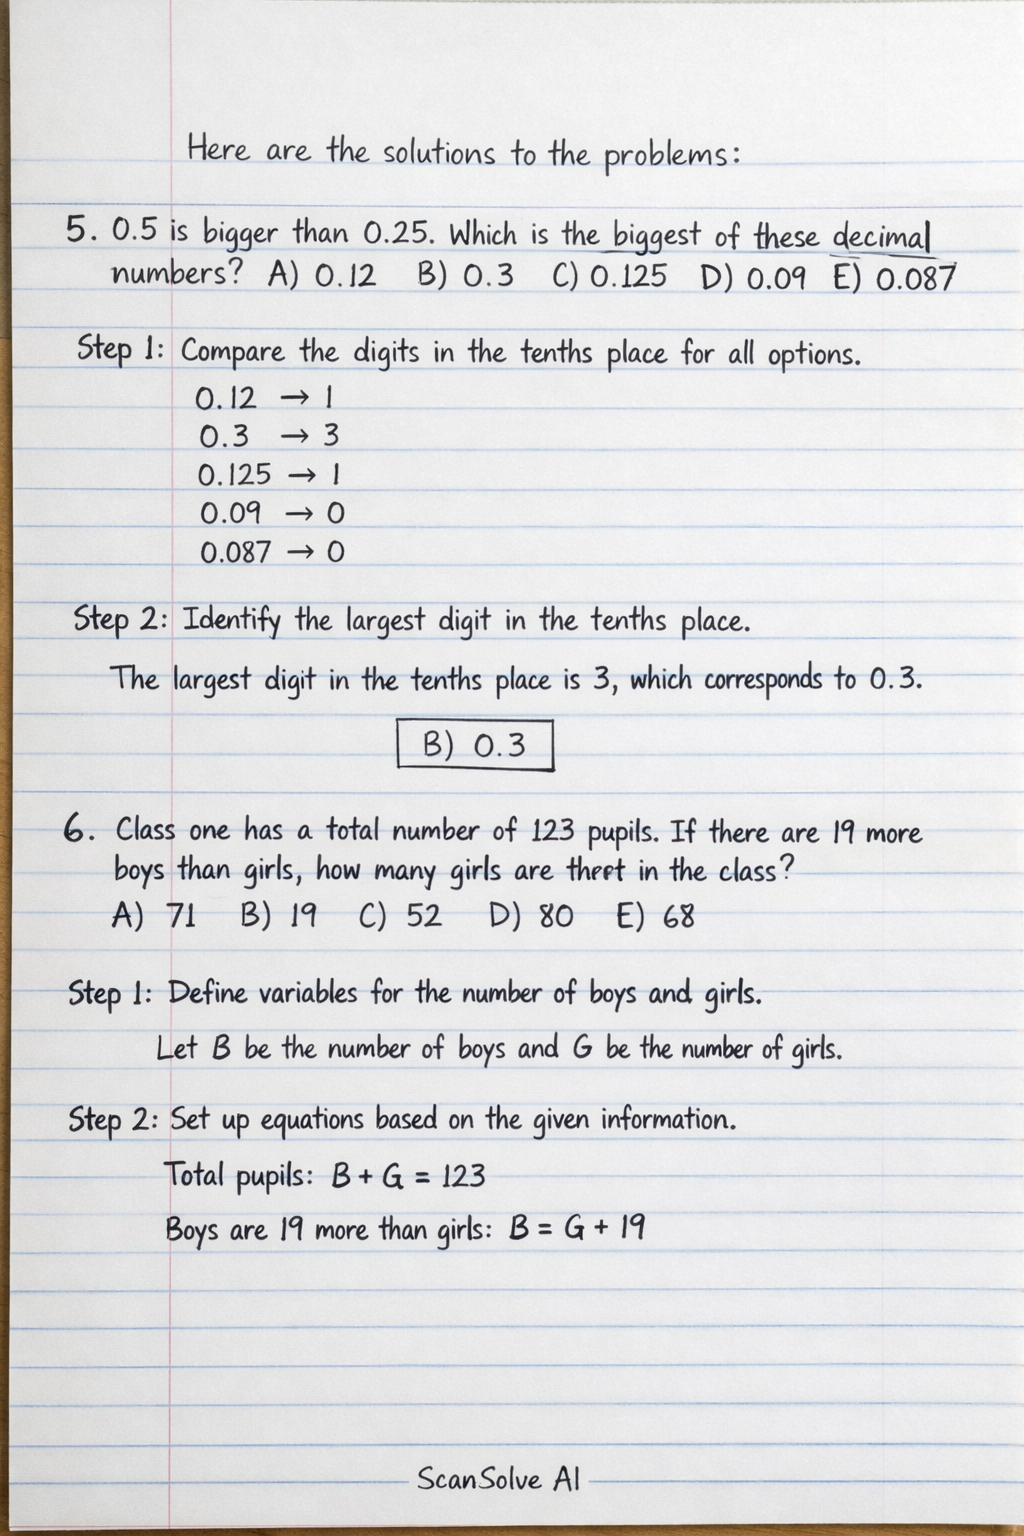 Here are the solutions to the problems:
5. 0.5 is bigger than 0.25. Which is the biggest of these decimal
numbers? A) 0.12 B) 0.3 C) 0.125 D) 0.09 E) 0.087
Step 1: Compare the digits in the tenths place for all options.
0.12 → 1
0.3 → 3
0.125 → 1
0.09 → 0
0.087 → 0
Step 2: Identify the largest digit in the tenths place.
The largest digit in the tenths place is 3, which corresponds to 0.3.
B) 0.3
6. Class one has a total number of 123 pupils. If there are 19 more
boys than girls, how many girls are in the class?
A) 71 B) 19 C) 52 D) 80 E) 68
Step 1: Define variables for the number of boys and girls.
Let B be the number of boys and G be the number of girls.
Step 2: Set up equations based on the given information.
Total pupils: B + G = 123
Boys are 19 more than girls: B = G + 19
ScanSolve AI